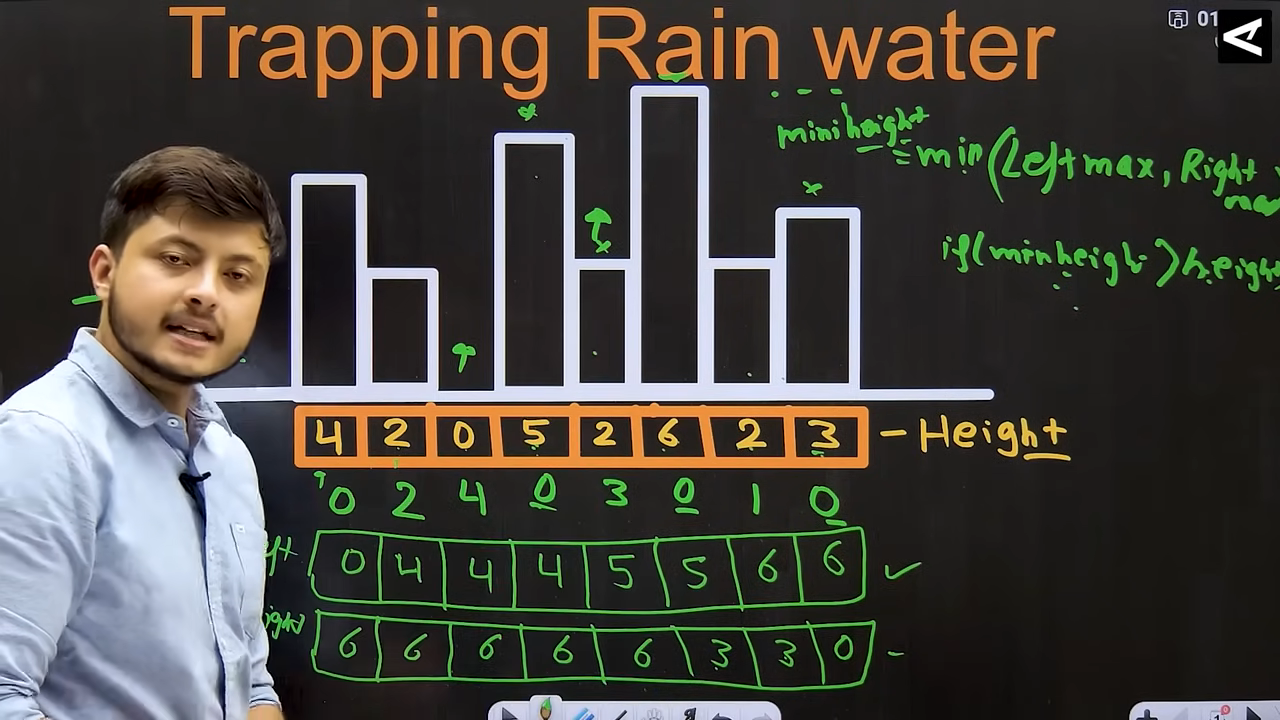 Trapping Rain water
01
miniheight
=min(Leftmax, Right
max
if(minheight>height
4 2 0 5 2 6 2 3 - Height
0 2 4 0 3 0 1 0
0 4 4 4 5 5 6 6
6 6 6 6 6 3 3 0